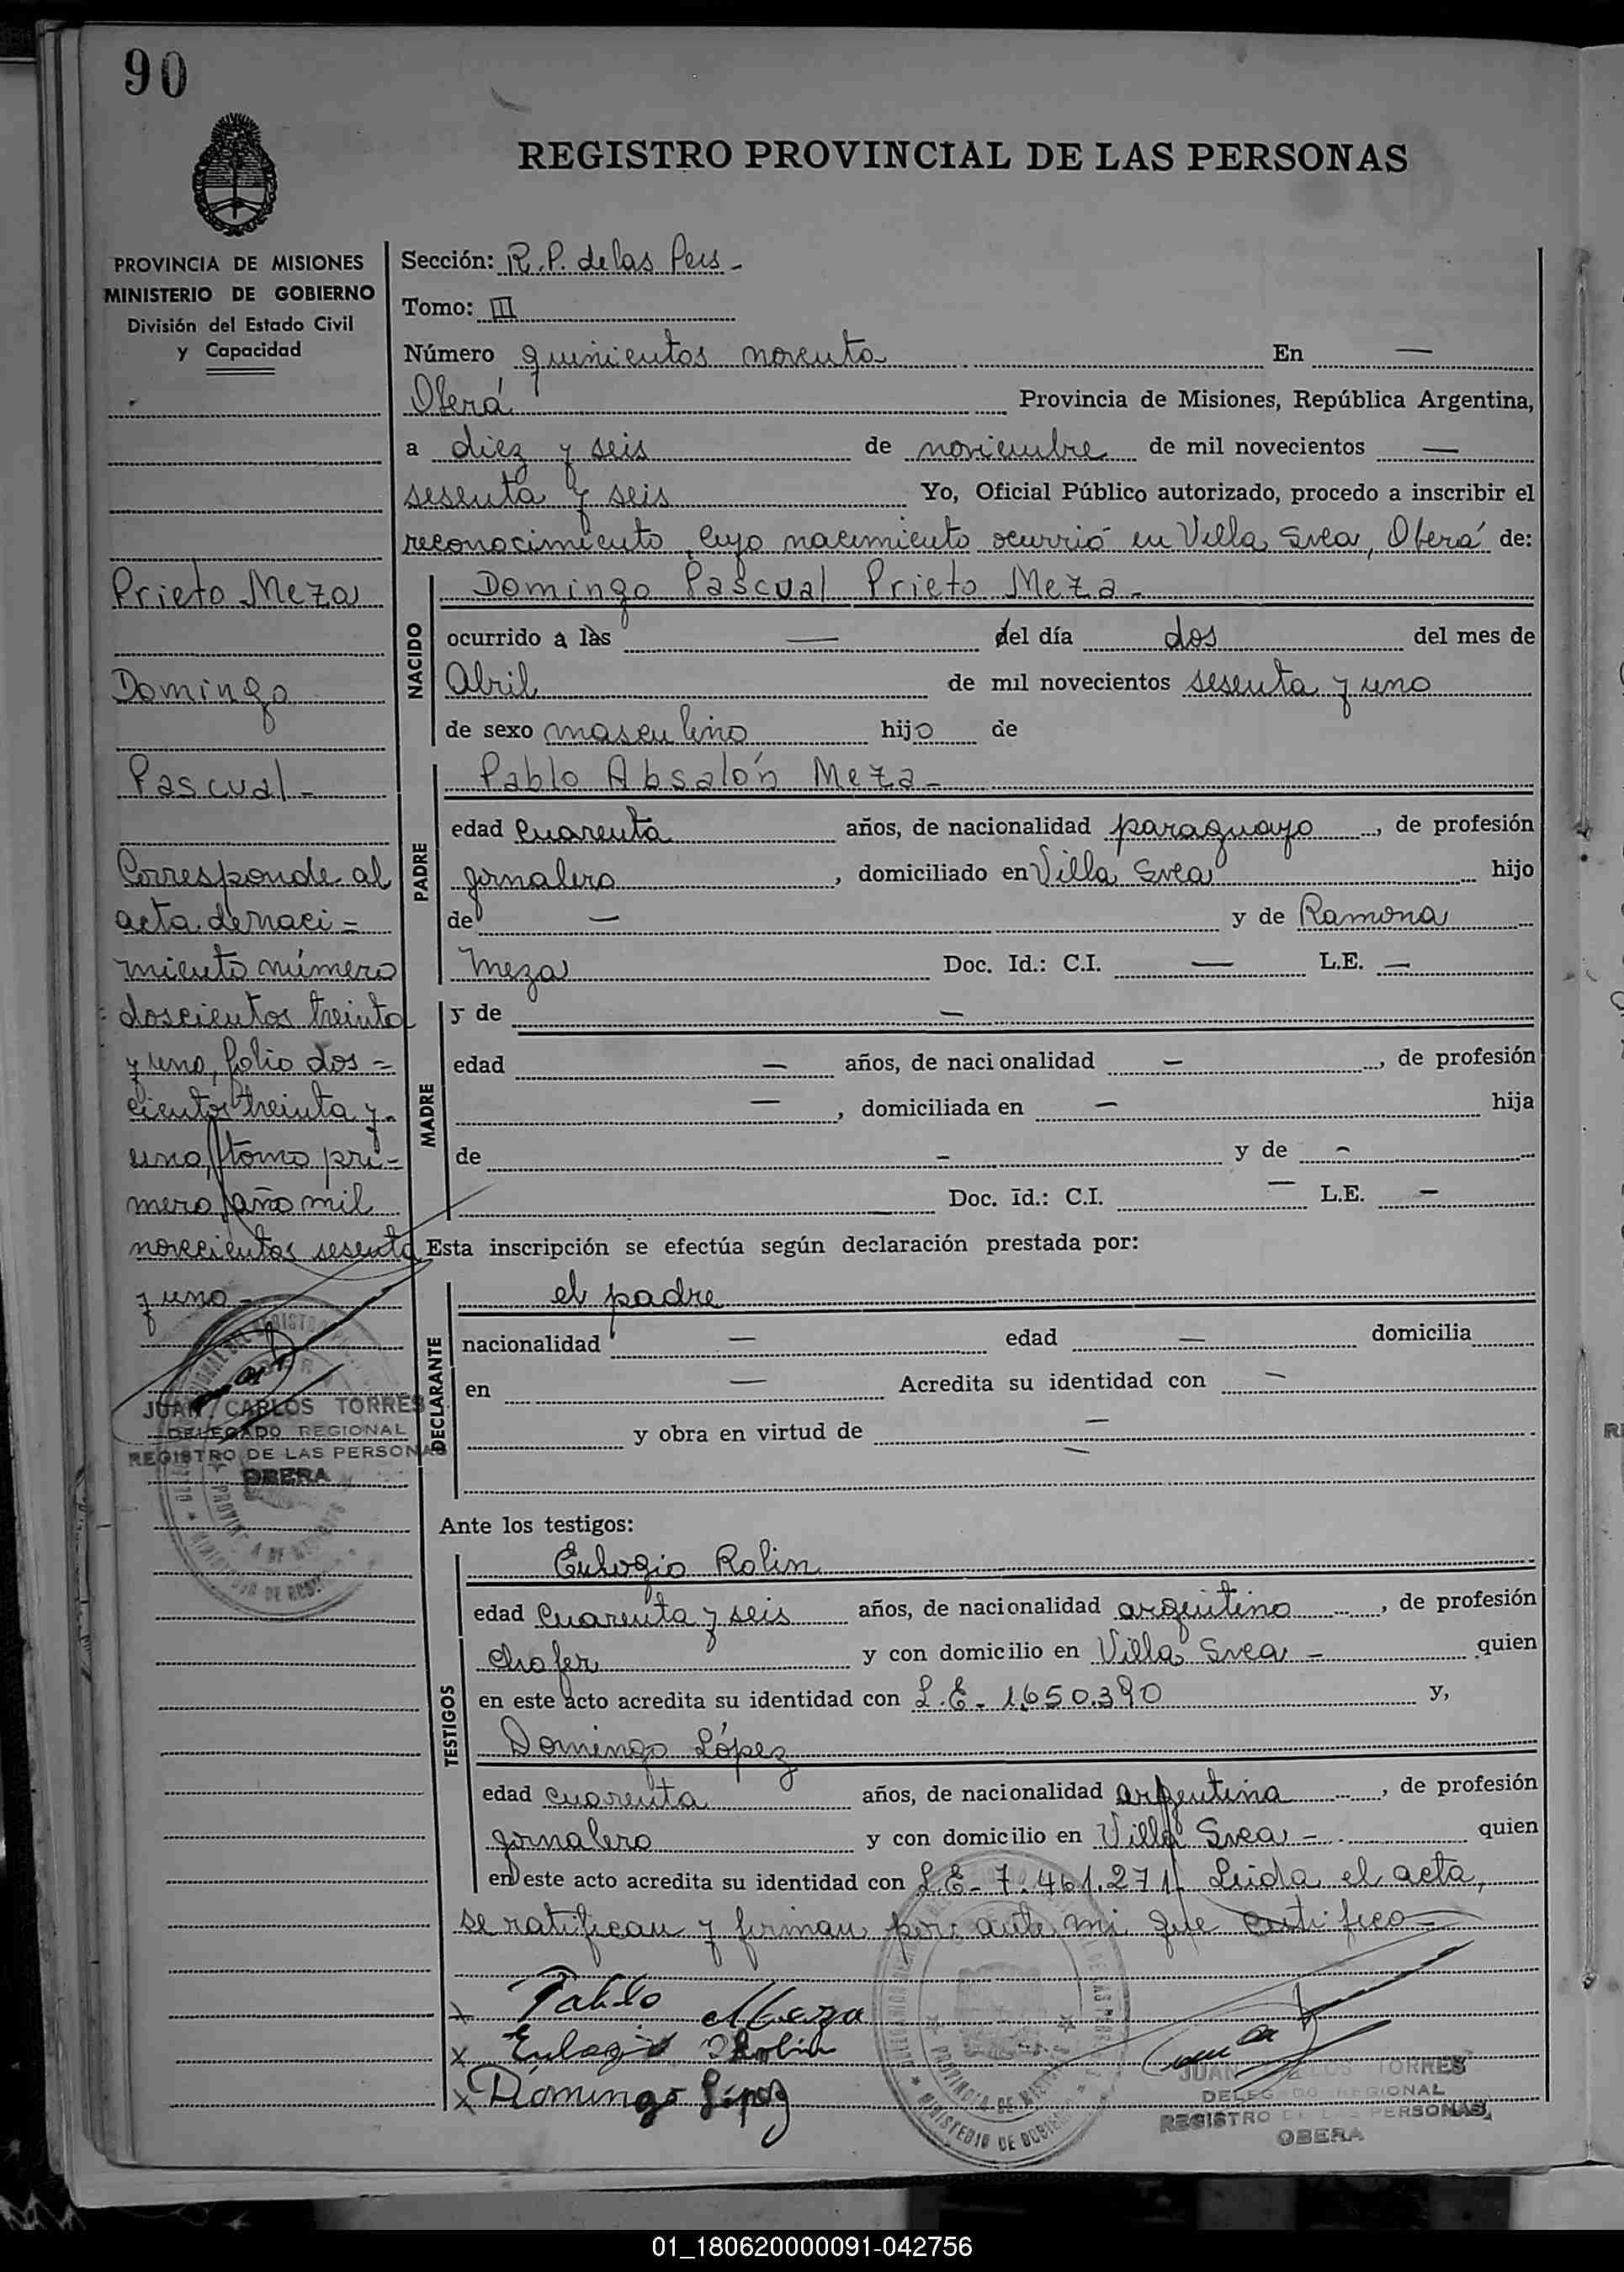 90
REGISTRO PROVINCIAL DE LAS PERSONAS
PROVINCIA DE MISIONES
MINISTERIO DE GOBIERNO
División del Estado Civil
y Capacidad
Prieto Meza
Domingo
Pascual -
Corresponde al
acta de naci =
miento número
doscientos treinta
y uno, folio dos =
cientos treinta y
uno, tomo pri -
mero, año mil
novecientos sesenta
y uno -
JUAN CARLOS TORRES
DELEGADO REGIONAL
REGISTRO DE LAS PERSONAS
OBERA
Sección: R. P. de las Pers -
Tomo: III
Número quinientos noventa En —
Oberá Provincia de Misiones, República Argentina,
a diez y seis de noviembre de mil novecientos —
sesenta y seis Yo, Oficial Público autorizado, procedo a inscribir el
reconocimiento, cuyo nacimiento ocurrió en Villa Svea, Oberá de:
NACIDO
Domingo Pascual Prieto Meza -
ocurrido a las — del día dos del mes de
Abril de mil novecientos sesenta y uno
de sexo masculino hijo de
PADRE
Pablo Absalón Meza -
edad cuarenta años, de nacionalidad paraguayo, de profesión
jornalero, domiciliado en Villa Svea hijo
de — y de Ramona
Meza Doc. Id.: C.I. — L.E. —
MADRE
y de —
edad — años, de nacionalidad —, de profesión
—, domiciliada en — hija
de - y de -
Doc. Id.: C.I. — L.E. —
Esta inscripción se efectúa según declaración prestada por:
DECLARANTE
el padre
nacionalidad — edad — domicilia
en — Acredita su identidad con —
y obra en virtud de —
Ante los testigos:
TESTIGOS
Eulogio Rolin
edad cuarenta y seis años, de nacionalidad argentino, de profesión
chofer y con domicilio en Villa Svea - quien
en este acto acredita su identidad con L.E. - 1.650.390 y,
Domingo López
edad cuarenta años, de nacionalidad argentina, de profesión
jornalero y con domicilio en Villa Svea - quien
en este acto acredita su identidad con L.E - 7.461.271. Leida el acta,
se ratifican y firman por ante mi que certifico -
x Pablo Meza
x Eulogio Rolin
x Domingo López
JUAN CARLOS TORRES
DELEGADO REGIONAL
REGISTRO DE LAS PERSONAS
OBERA
01_180620000091-042756